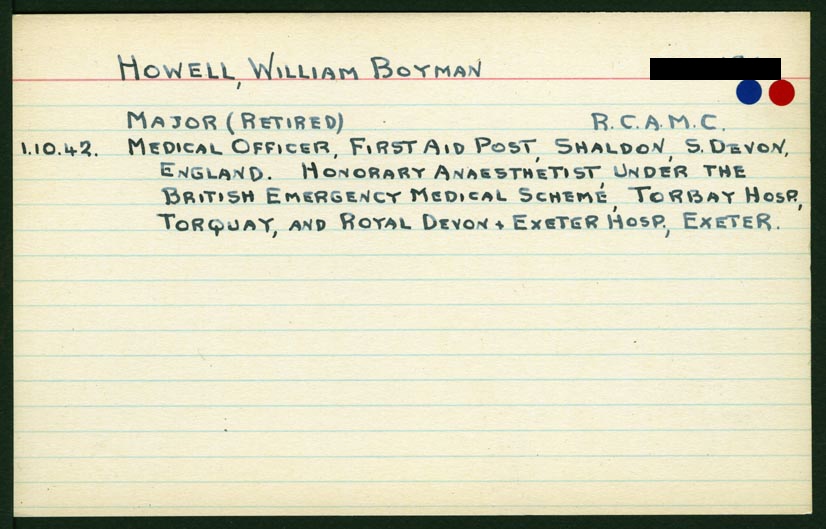 HOWELL, WILLIAM BOYMAN
MAJOR (RETIRED) R.C.A.M.C.
1.10.42. MEDICAL OFFICER, FIRST AID POST, SHALDON, S. DEVON,
ENGLAND. HONORARY ANAESTHETIST, UNDER THE
BRITISH EMERGENCY MEDICAL SCHEME, TORBAY HOSP.,
TORQUAY, AND ROYAL DEVON + EXETER HOSP., EXETER.